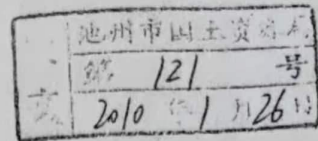 池州市国土资源局
第 121 号
2010 年 1 月 26 日